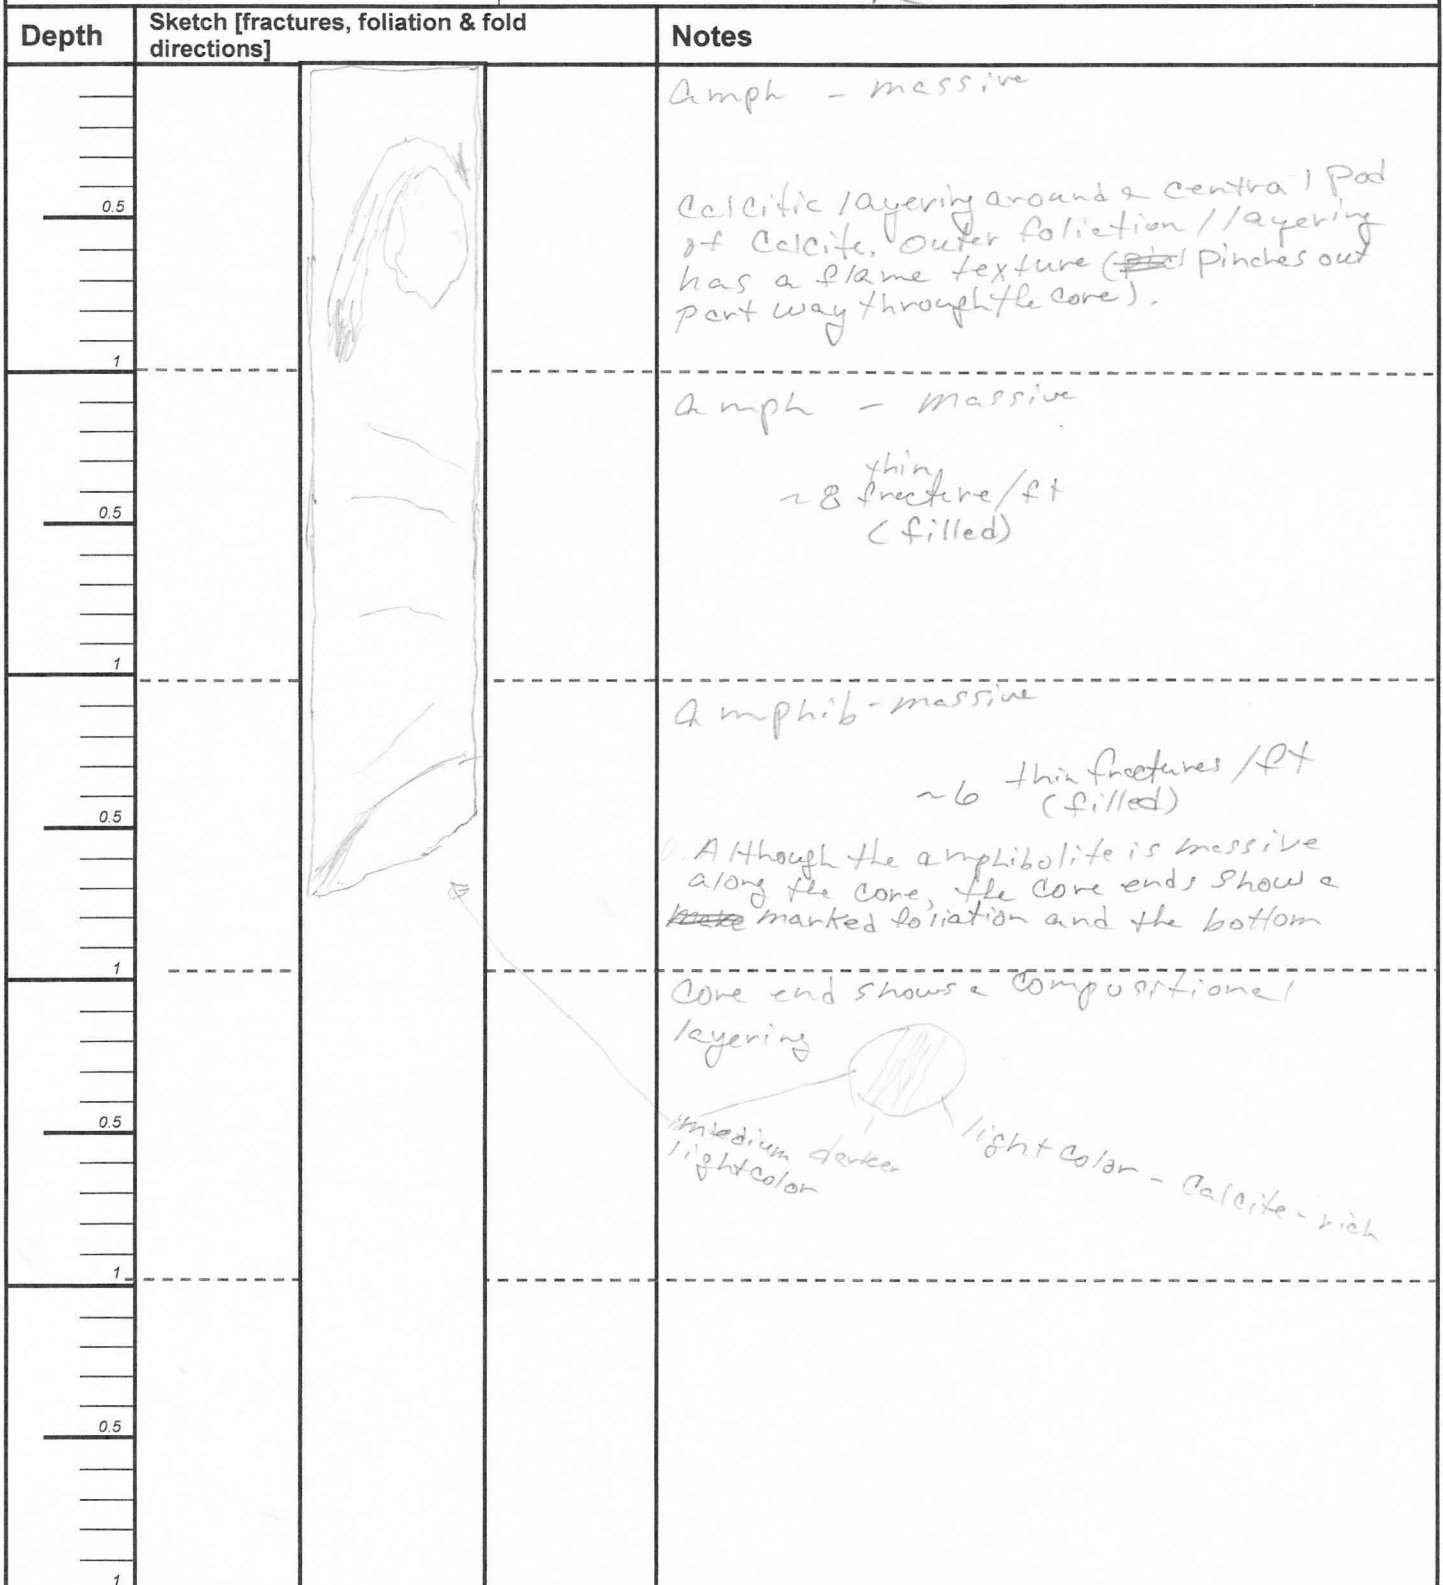 Depth
Sketch [fractures, foliation & fold
directions]
Notes
amph - massive
Calcitic layering around a central pod
0.5
of Calcite. Outer foliation/layering
has a flame texture ( pinches out
part way through the core).
1
amph - massive
thin
~8 fracture/ft
0.5
(filled)
1
amphib-massive
thin fractures/ft
~6 (filled)
0.5
Although the amphibolite is massive
along the core, the core ends show a
marked foliation and the bottom
1
Core end shows a compositional
layering
0.5
medium darker
light color
light color - Calcite-rich
1
0.5
1